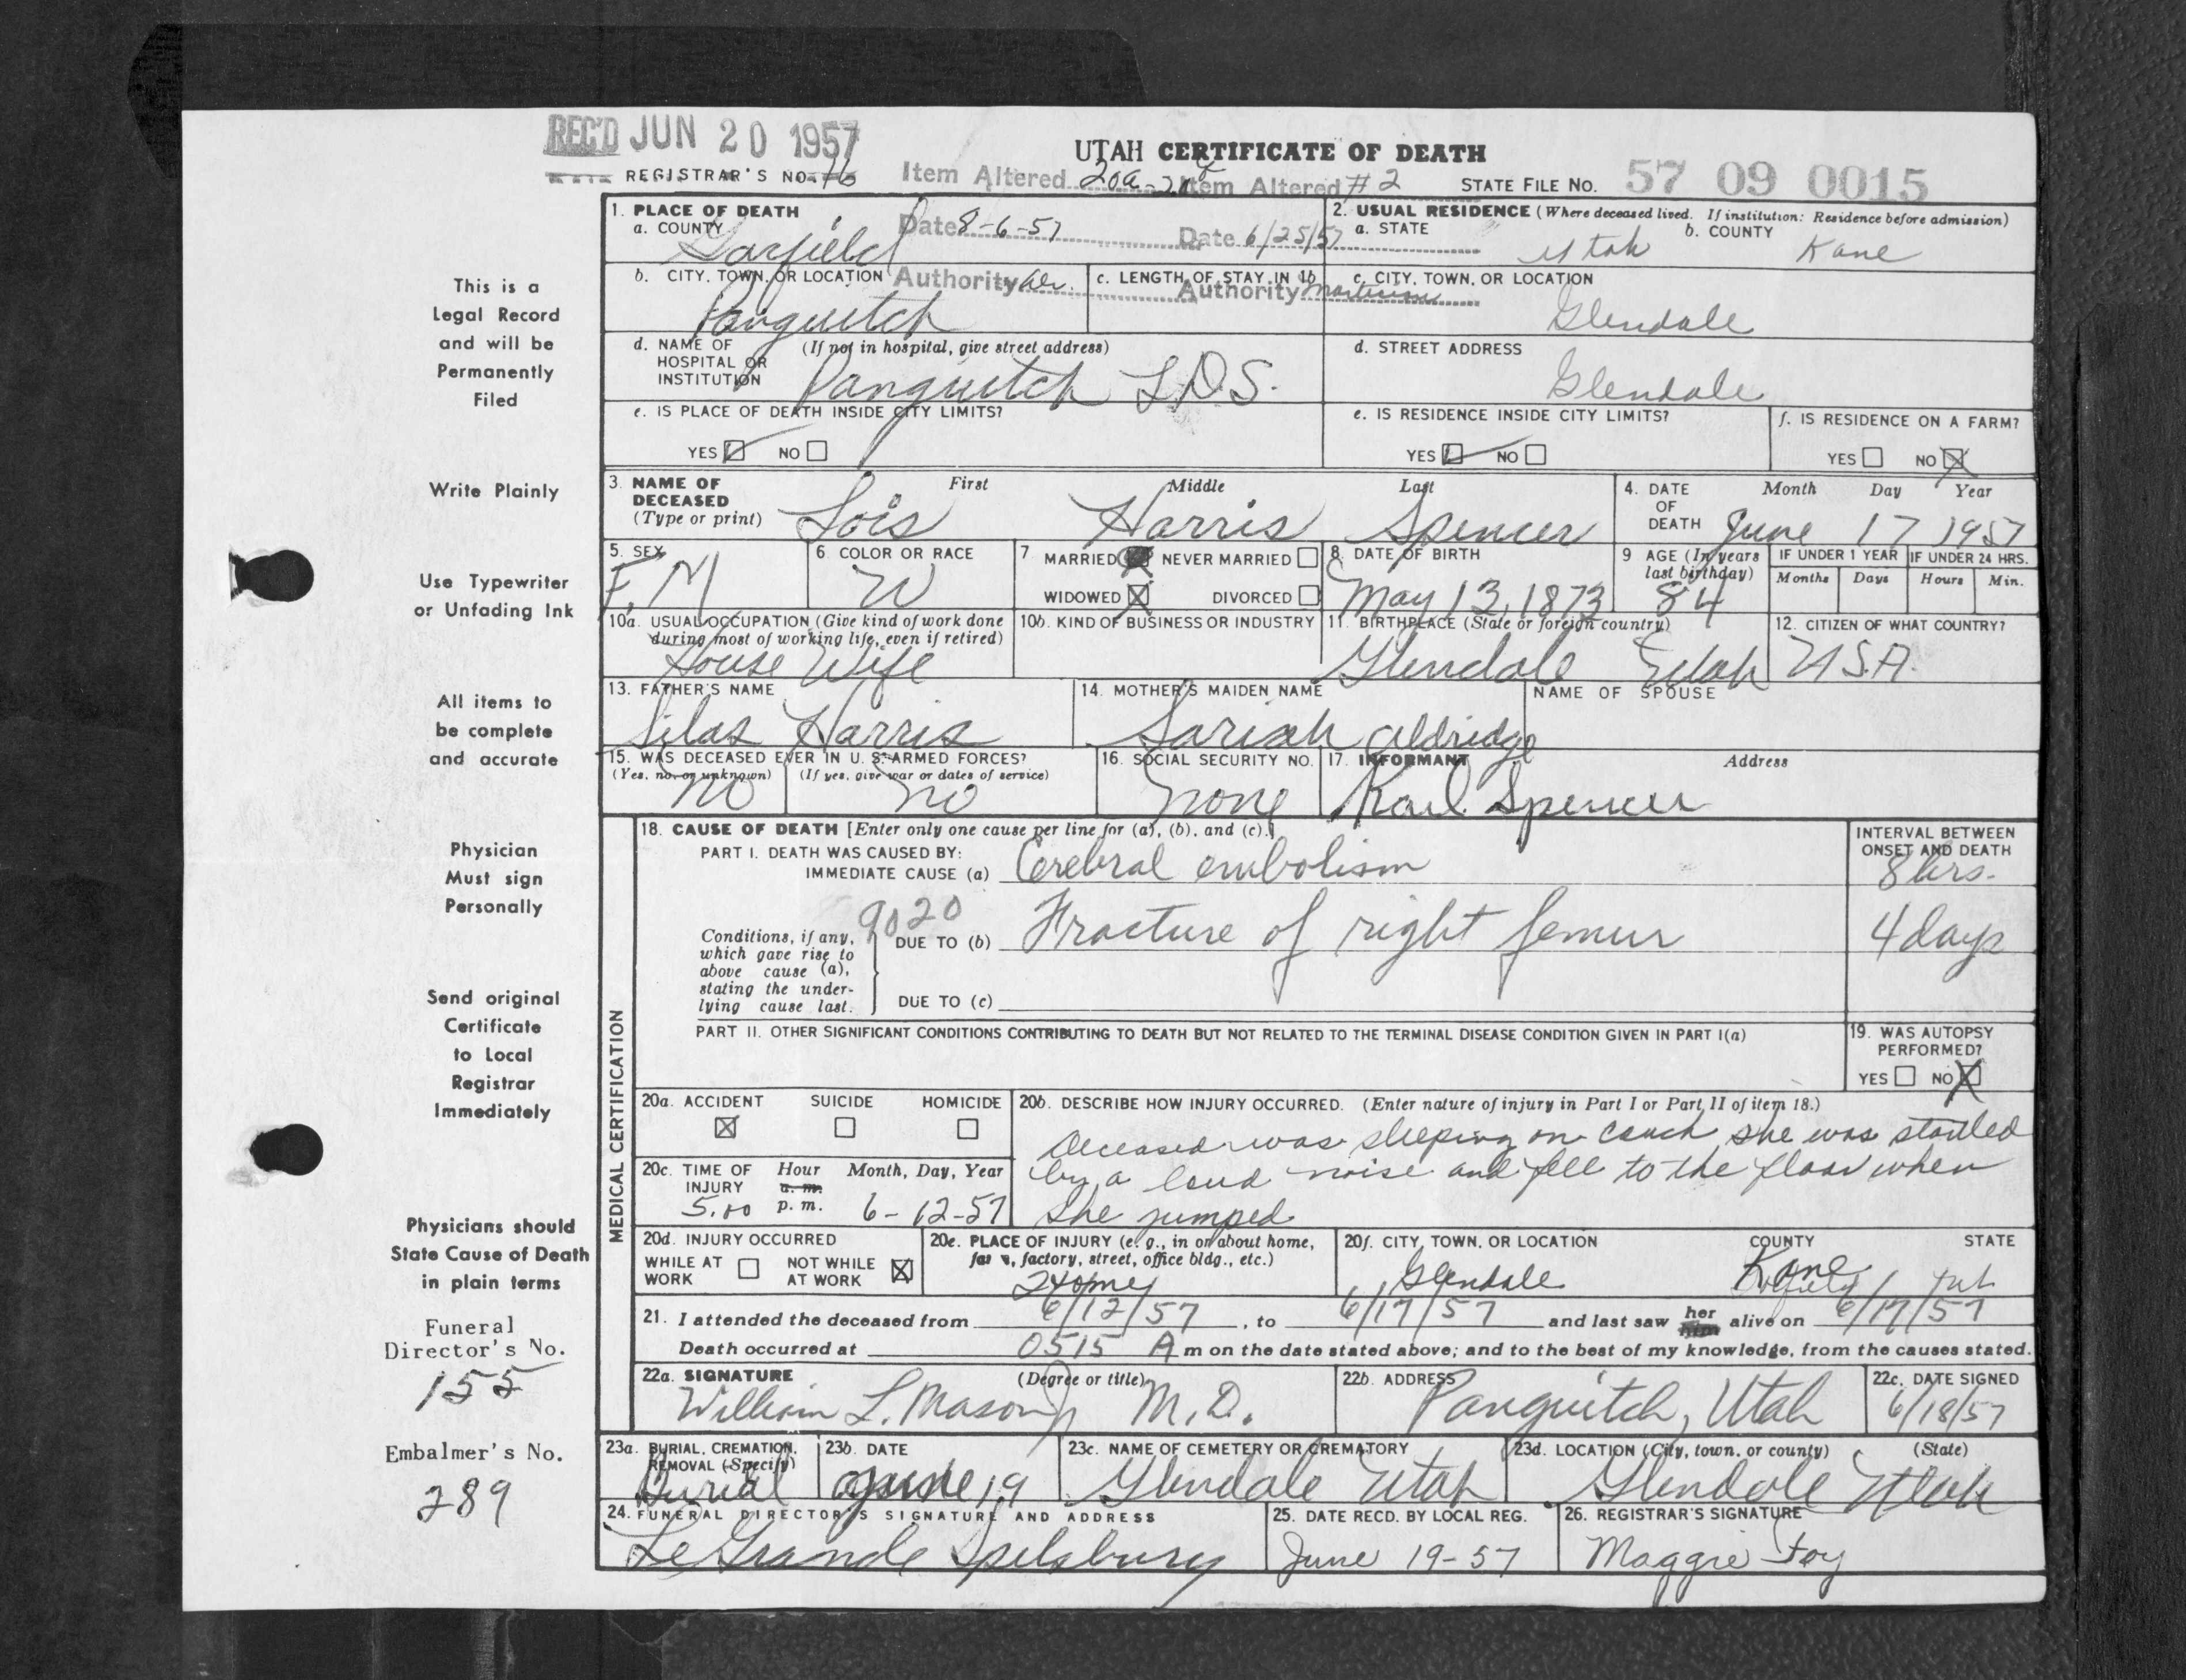 REC'D JUN 20 1957
UTAH CERTIFICATE OF DEATH
REGISTRAR'S NO. 16 Item Altered 20a-20f Item Altered #2 STATE FILE NO. 57 09 0015
1. PLACE OF DEATH
a. COUNTY Garfield
Date 8-6-57
Date 6/25/57
2. USUAL RESIDENCE (Where deceased lived. If institution: Residence before admission)
a. STATE Utah b. COUNTY Kane
b. CITY, TOWN, OR LOCATION Panguitch
Authority
c. LENGTH OF STAY IN 1b
Authority
c. CITY, TOWN, OR LOCATION
Glendale
d. NAME OF HOSPITAL OR INSTITUTION (If not in hospital, give street address)
Panguitch L.D.S.
d. STREET ADDRESS
Glendale
e. IS PLACE OF DEATH INSIDE CITY LIMITS?
YES NO
e. IS RESIDENCE INSIDE CITY LIMITS?
YES NO
f. IS RESIDENCE ON A FARM?
YES NO
3. NAME OF DECEASED (Type or print)
First Middle Last
Lois Harris Spencer
4. DATE OF DEATH Month Day Year
June 17 1957
5. SEX
F. M
6. COLOR OR RACE
W
7. MARRIED NEVER MARRIED
WIDOWED DIVORCED
8. DATE OF BIRTH
May 13, 1873
9 AGE (In years last birthday)
84
IF UNDER 1 YEAR IF UNDER 24 HRS.
Months Days Hours Min.
10a. USUAL OCCUPATION (Give kind of work done during most of working life, even if retired)
House Wife
10b. KIND OF BUSINESS OR INDUSTRY
11. BIRTHPLACE (State or foreign country)
Glendale Utah
12. CITIZEN OF WHAT COUNTRY?
U.S.A.
13. FATHER'S NAME
Silas Harris
14. MOTHER'S MAIDEN NAME
Sariah Aldridge
NAME OF SPOUSE
15. WAS DECEASED EVER IN U. S. ARMED FORCES?
(Yes, no, or unknown) (If yes, give war or dates of service)
no no
16. SOCIAL SECURITY NO.
none
17. INFORMANT Address
Karl Spencer
MEDICAL CERTIFICATION
18. CAUSE OF DEATH [Enter only one cause per line for (a), (b), and (c).]
PART I. DEATH WAS CAUSED BY:
IMMEDIATE CAUSE (a) Cerebral embolism
INTERVAL BETWEEN ONSET AND DEATH
8 hrs.
9020
Conditions, if any, which gave rise to above cause (a), stating the underlying cause last.
DUE TO (b) Fracture of right femur
4 days
DUE TO (c)
PART II. OTHER SIGNIFICANT CONDITIONS CONTRIBUTING TO DEATH BUT NOT RELATED TO THE TERMINAL DISEASE CONDITION GIVEN IN PART I(a)
19. WAS AUTOPSY PERFORMED?
YES NO
20a. ACCIDENT SUICIDE HOMICIDE
20b. DESCRIBE HOW INJURY OCCURRED. (Enter nature of injury in Part I or Part II of item 18.)
Deceased was sleeping on couch she was startled
by a loud noise and fell to the floor when
she jumped
20c. TIME OF INJURY Hour Month, Day, Year
a. m.
5.00 p. m. 6-12-57
20d. INJURY OCCURRED
WHILE AT WORK NOT WHILE AT WORK
20e. PLACE OF INJURY (e. g., in or about home, farm, factory, street, office bldg., etc.)
Home
20f. CITY, TOWN, OR LOCATION COUNTY STATE
Glendale Kane Ut
21. I attended the deceased from 6/12/57, to 6/17/57 and last saw her him alive on 6/17/57
Death occurred at 0515 A m on the date stated above; and to the best of my knowledge, from the causes stated.
22a. SIGNATURE (Degree or title)
William L. Mason M.D.
22b. ADDRESS
Panguitch, Utah
22c. DATE SIGNED
6/18/57
23a. BURIAL, CREMATION, REMOVAL (Specify)
Burial
23b. DATE
June 19
23c. NAME OF CEMETERY OR CREMATORY
Glendale Utah
23d. LOCATION (City, town, or county) (State)
Glendale Utah
24. FUNERAL DIRECTOR'S SIGNATURE AND ADDRESS
LeGrande Spilsbury
25. DATE RECD. BY LOCAL REG.
June 19-57
26. REGISTRAR'S SIGNATURE
Maggie Foy
This is a
Legal Record
and will be
Permanently
Filed
Write Plainly
Use Typewriter
or Unfading Ink
All items to
be complete
and accurate
Physician
Must sign
Personally
Send original
Certificate
to Local
Registrar
Immediately
Physicians should
State Cause of Death
in plain terms
Funeral
Director's No.
155
Embalmer's No.
289